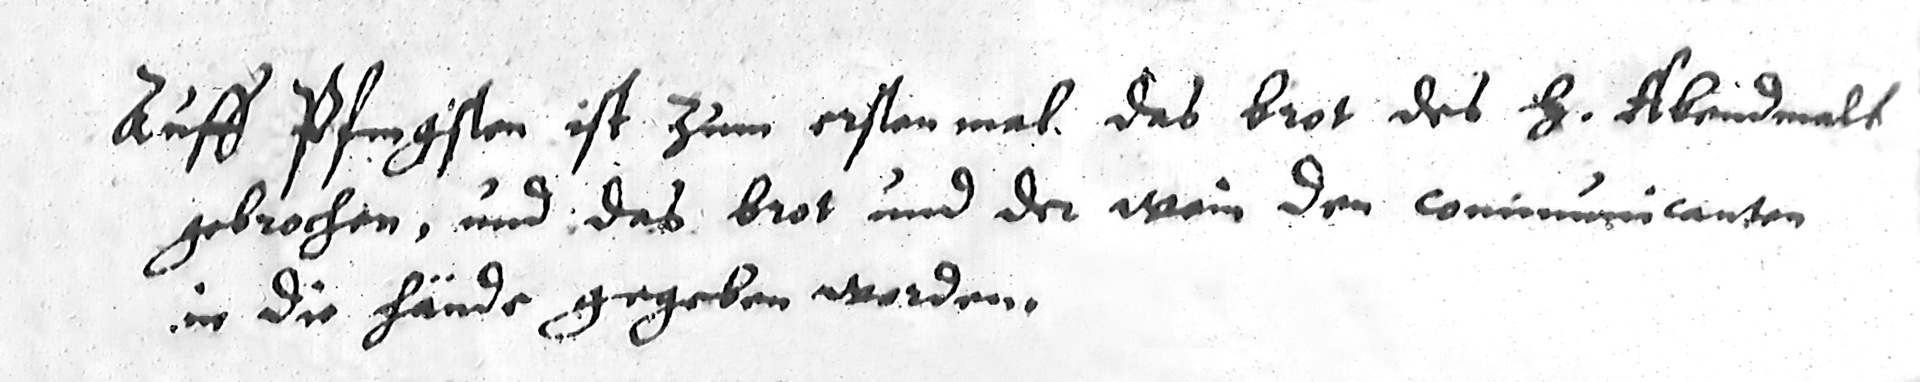 Auff Pfingsten ist zum erstenmal das brot des H. Abendmalß
gebrochen, und das brot und der wein den communicanten
in die hände gegeben worden.